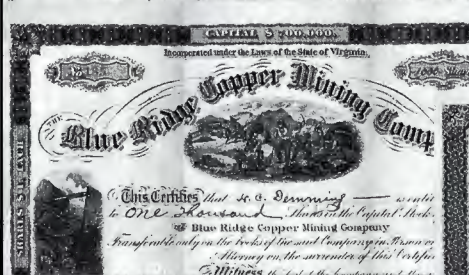 CAPITAL $ 700,000.
Incorporated under the Laws of the State of Virginia.
THE
Blue Ridge Copper Mining Comp
SHARES $ EACH
This Certifies that H. C. Demming is entitl
to One Thousand Shares in the Capital Stock
of Blue Ridge Copper Mining Company
Transferable only on the books of the said Company in Person or
Attorney on the surrender of this Certific
In Witness the